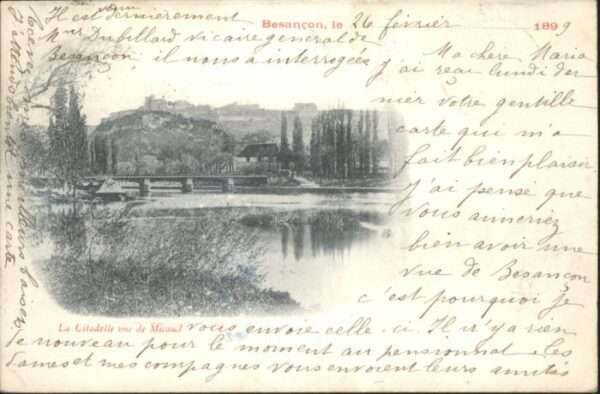 Besançon, le 26 février 1899
Ma chère Maria
j'ai reçu lundi der
nier votre gentille
carte qui m'a
fait bien plaisir.
J'ai pensé que
vous aimeriez
bien avoir une
vue de Besançon
c'est pourquoi je
vous envoie celle-ci. Il n'y a rien
de nouveau pour le moment au pensionnat. les
dames et mes compagnes vous envoient leurs amitiés
La Citadelle vue de Micaud
Il est venu dernièrement
Mgr Dubillard vicaire general de
Besançon il nous a interrogées
J'attends bientôt une carte
meilleurs baisers